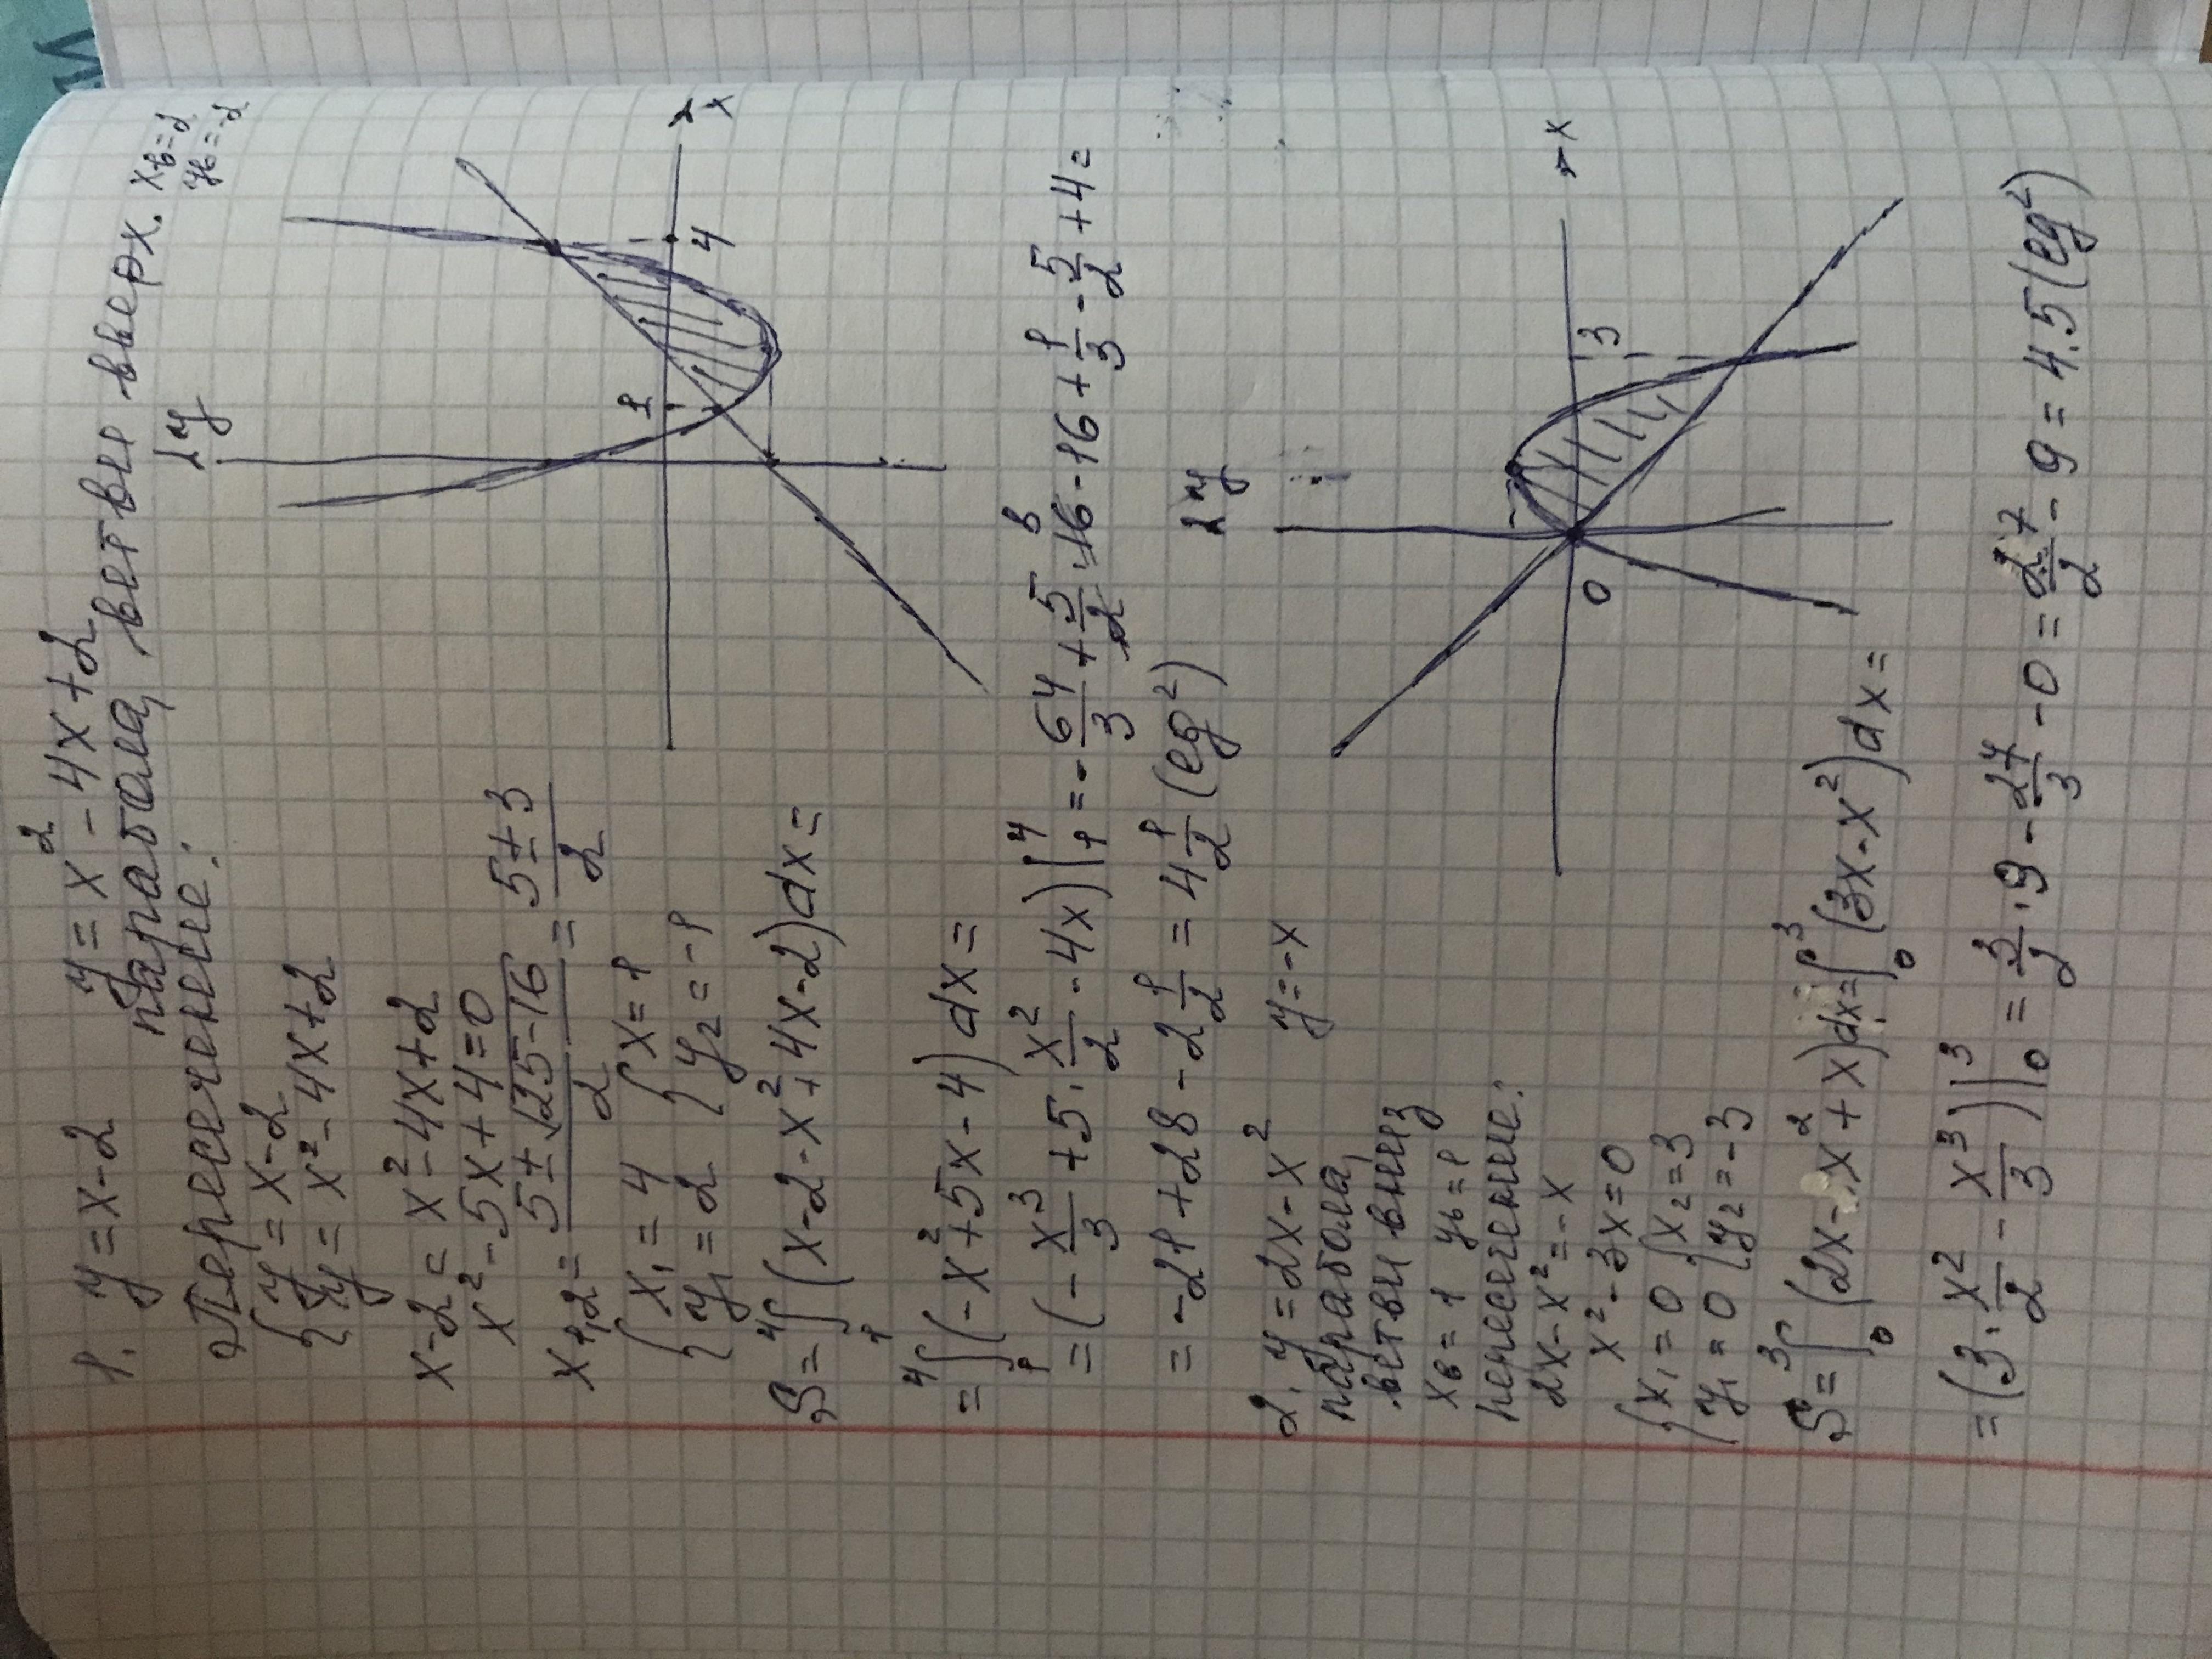 1. y = x - 2   y = x² - 4x + 2
парабола, ветви вверх. xв = 2
yв = -2
Пересечение:
{ y = x - 2
{ y = x² - 4x + 2
x - 2 = x² - 4x + 2
x² - 5x + 4 = 0
x1,2 = (5 ± √(25 - 16))/2 = (5 ± 3)/2
{ x₁ = 4   { x = 1
{ y₁ = 2   { y₂ = -1
y
x
1
4
S = ∫₁⁴ (x - 2 - x² + 4x - 2) dx =
= ∫₁⁴ (-x² + 5x - 4) dx =
= (-x³/3 + 5 · x²/2 - 4x) |₁⁴ = -64/3 + 5/2 · 16 8 - 16 + 1/3 - 5/2 + 4 =
= -21 + 28 - 2 1/2 = 4 1/2 (ед²)
2. y = 2x - x²   y = -x
парабола,
ветви вниз
xв = 1   yв = 1
пересечение:
2x - x² = -x
x² - 3x = 0
{ x₁ = 0   { x₂ = 3
{ y₁ = 0   { y₂ = -3
y
x
0
3
S = ∫₀³ (2x - x² + x) dx = ∫₀³ (3x - x²) dx =
= (3 · x²/2 - x³/3) |₀³ = 3/2 · 9 - 27/3 - 0 = 27/2 - 9 = 4.5 (ед²)